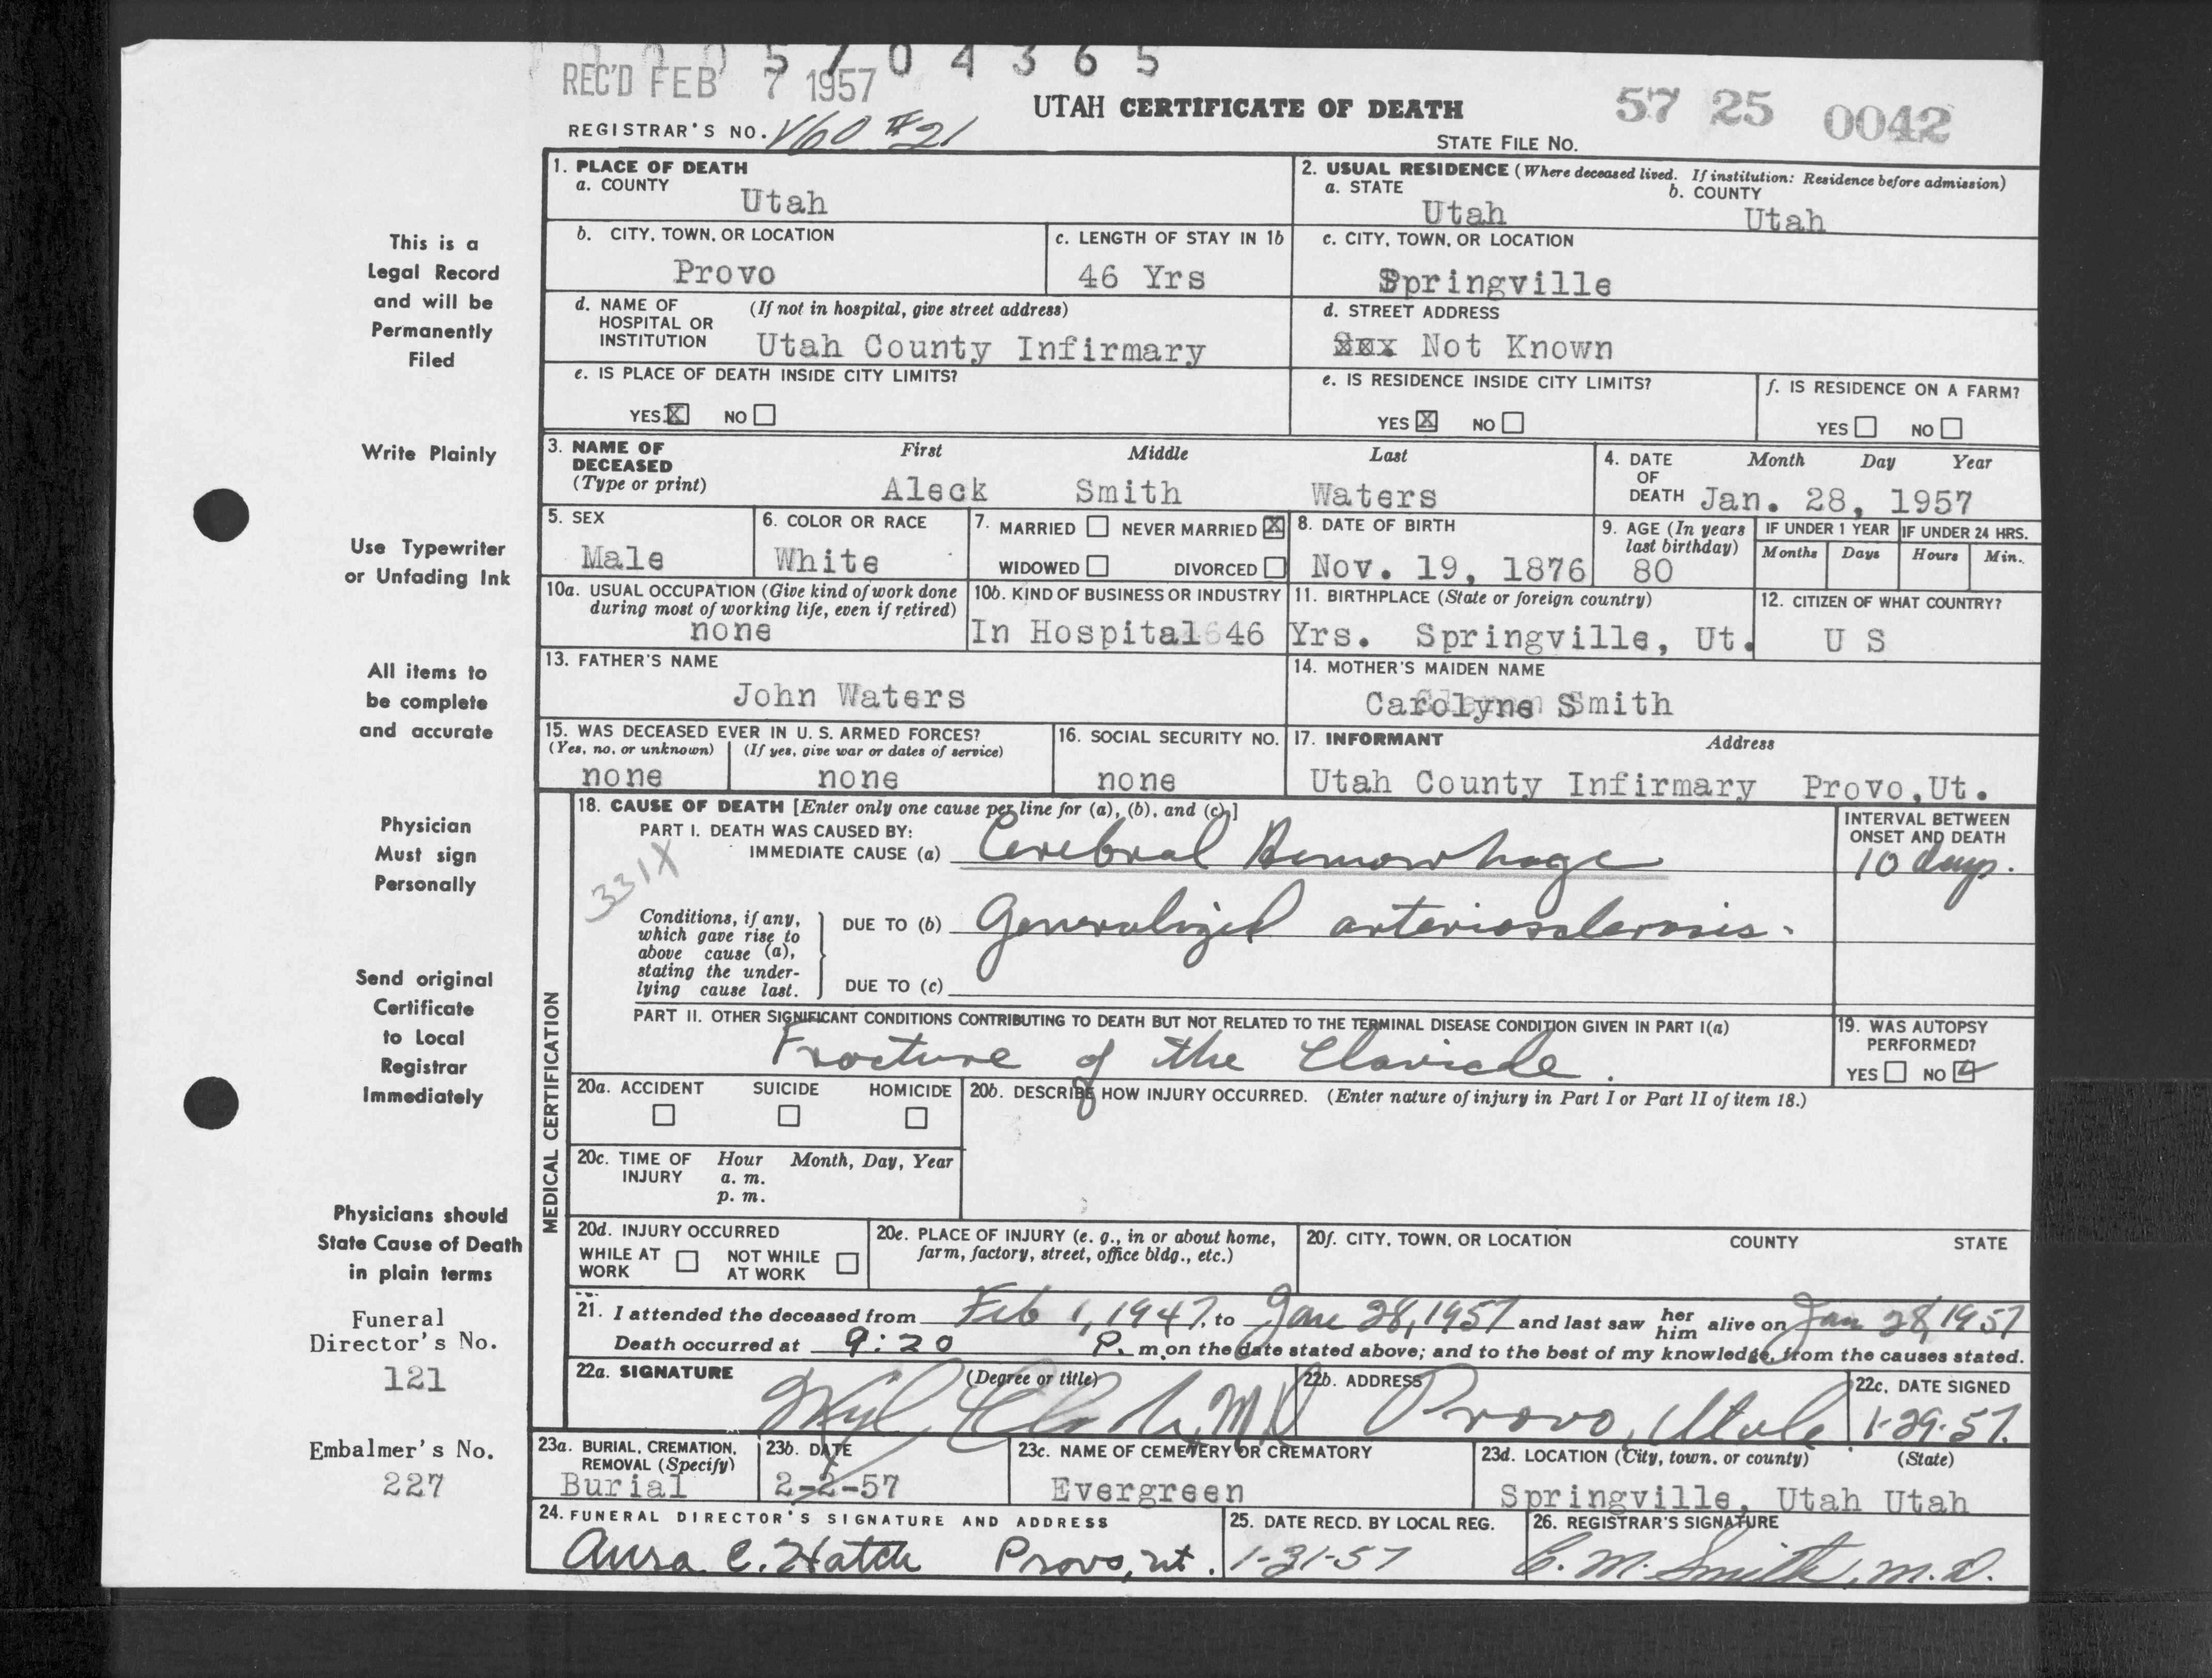 0005704365
REC'D FEB 7 1957
UTAH CERTIFICATE OF DEATH
57 25 0042
REGISTRAR'S NO. V60 #21
STATE FILE NO.
1. PLACE OF DEATH
a. COUNTY
Utah
2. USUAL RESIDENCE (Where deceased lived. If institution: Residence before admission)
a. STATE
Utah
b. COUNTY
Utah
This is a
Legal Record
and will be
Permanently
Filed
b. CITY, TOWN, OR LOCATION
Provo
c. LENGTH OF STAY IN 1b
46 Yrs
c. CITY, TOWN, OR LOCATION
Springville
d. NAME OF HOSPITAL OR INSTITUTION
(If not in hospital, give street address)
Utah County Infirmary
d. STREET ADDRESS
Not Known
e. IS PLACE OF DEATH INSIDE CITY LIMITS?
YES X NO
e. IS RESIDENCE INSIDE CITY LIMITS?
YES X NO
f. IS RESIDENCE ON A FARM?
YES NO
Write Plainly
3. NAME OF DECEASED
(Type or print)
First Middle Last
Aleck Smith Waters
4. DATE OF DEATH
Month Day Year
Jan. 28, 1957
Use Typewriter
or Unfading Ink
5. SEX
Male
6. COLOR OR RACE
White
7. MARRIED NEVER MARRIED X
WIDOWED DIVORCED
8. DATE OF BIRTH
Nov. 19, 1876
9. AGE (In years last birthday)
80
IF UNDER 1 YEAR
Months Days
IF UNDER 24 HRS.
Hours Min.
10a. USUAL OCCUPATION (Give kind of work done
during most of working life, even if retired)
none
10b. KIND OF BUSINESS OR INDUSTRY
In Hospital 46 Yrs.
11. BIRTHPLACE (State or foreign country)
Springville, Ut.
12. CITIZEN OF WHAT COUNTRY?
U S
All items to
be complete
and accurate
13. FATHER'S NAME
John Waters
14. MOTHER'S MAIDEN NAME
Carolyne Smith
15. WAS DECEASED EVER IN U. S. ARMED FORCES?
(Yes, no, or unknown) (If yes, give war or dates of service)
none none
16. SOCIAL SECURITY NO.
none
17. INFORMANT Address
Utah County Infirmary Provo,Ut.
Physician
Must sign
Personally
MEDICAL CERTIFICATION
18. CAUSE OF DEATH [Enter only one cause per line for (a), (b), and (c).]
PART I. DEATH WAS CAUSED BY:
IMMEDIATE CAUSE (a) Cerebral Hemorrhage
331X
INTERVAL BETWEEN
ONSET AND DEATH
10 days.
Conditions, if any,
which gave rise to
above cause (a),
stating the under-
lying cause last.
DUE TO (b) Generalized arteriosclerosis.
DUE TO (c)
Send original
Certificate
to Local
Registrar
Immediately
PART II. OTHER SIGNIFICANT CONDITIONS CONTRIBUTING TO DEATH BUT NOT RELATED TO THE TERMINAL DISEASE CONDITION GIVEN IN PART I(a)
Fracture of the Clavicle.
19. WAS AUTOPSY
PERFORMED?
YES NO
20a. ACCIDENT SUICIDE HOMICIDE
20b. DESCRIBE HOW INJURY OCCURRED. (Enter nature of injury in Part I or Part II of item 18.)
20c. TIME OF INJURY
Hour Month, Day, Year
a. m.
p. m.
Physicians should
State Cause of Death
in plain terms
20d. INJURY OCCURRED
WHILE AT WORK NOT WHILE AT WORK
20e. PLACE OF INJURY (e. g., in or about home,
farm, factory, street, office bldg., etc.)
20f. CITY, TOWN, OR LOCATION COUNTY STATE
21. I attended the deceased from Feb 1, 1947, to Jan 28, 1957 and last saw her him alive on Jan 28, 1957
Death occurred at 9:20 P. m on the date stated above; and to the best of my knowledge, from the causes stated.
Funeral
Director's No.
121
22a. SIGNATURE (Degree or title)
M.D
22b. ADDRESS
Provo, Utah
22c. DATE SIGNED
1-29-57.
Embalmer's No.
227
23a. BURIAL, CREMATION,
REMOVAL (Specify)
Burial
23b. DATE
2-2-57
23c. NAME OF CEMETERY OR CREMATORY
Evergreen
23d. LOCATION (City, town, or county) (State)
Springville, Utah Utah
24. FUNERAL DIRECTOR'S SIGNATURE AND ADDRESS
Aura C. Hatch Provo, Ut.
25. DATE RECD. BY LOCAL REG.
1-31-57
26. REGISTRAR'S SIGNATURE
C. M. Smith, M.D.